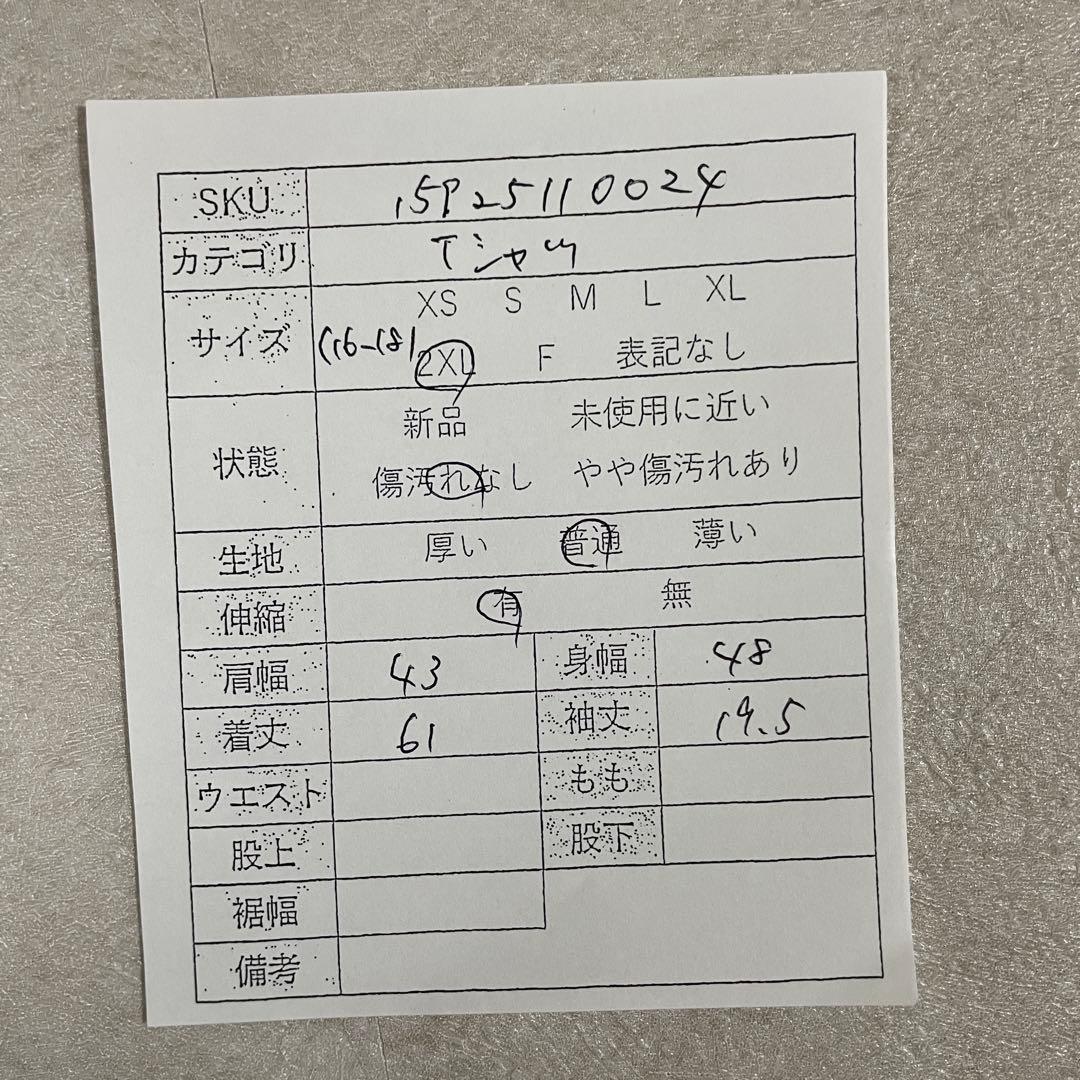 SKU 15925110024
カテゴリ Tシャツ
XS S M L XL
サイズ (16-18) 2XL F 表記なし
新品 未使用に近い
状態
傷汚れなし やや傷汚れあり
生地 厚い 普通 薄い
伸縮 有 無
肩幅 43 身幅 48
着丈 61 袖丈 19.5
ウエスト もも
股上 股下
裾幅
備考